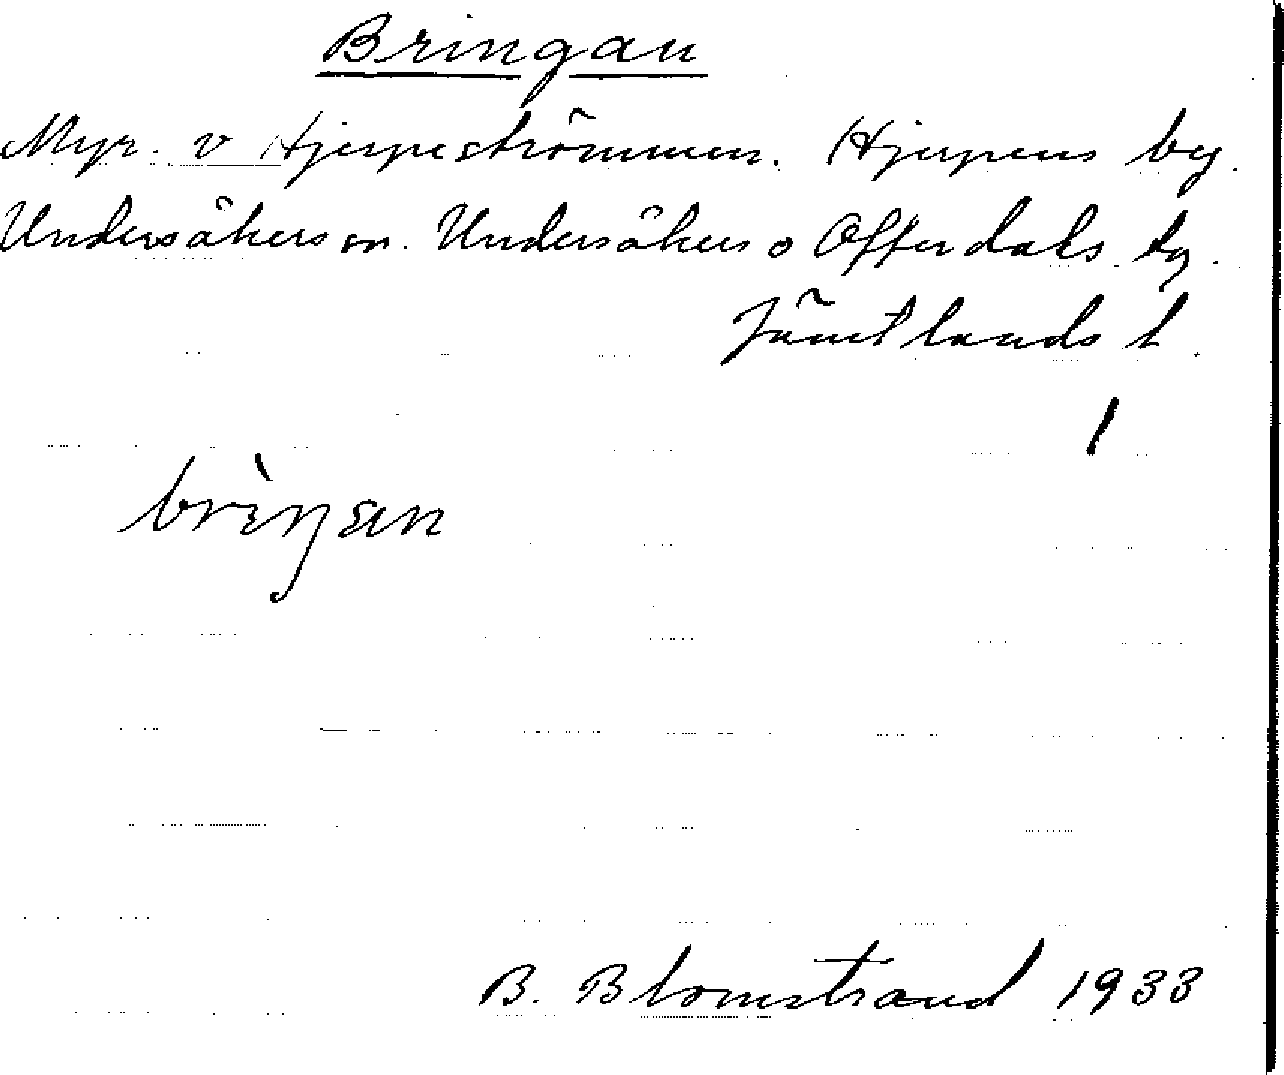 Bringan
Myr. v Hjerpeströmmen. Hjerpens by.
Undersåkers sn. Undersåkers o Offerdals tg.
Jämtlands l.
/
brìŋan
B. Blomstrand 1933